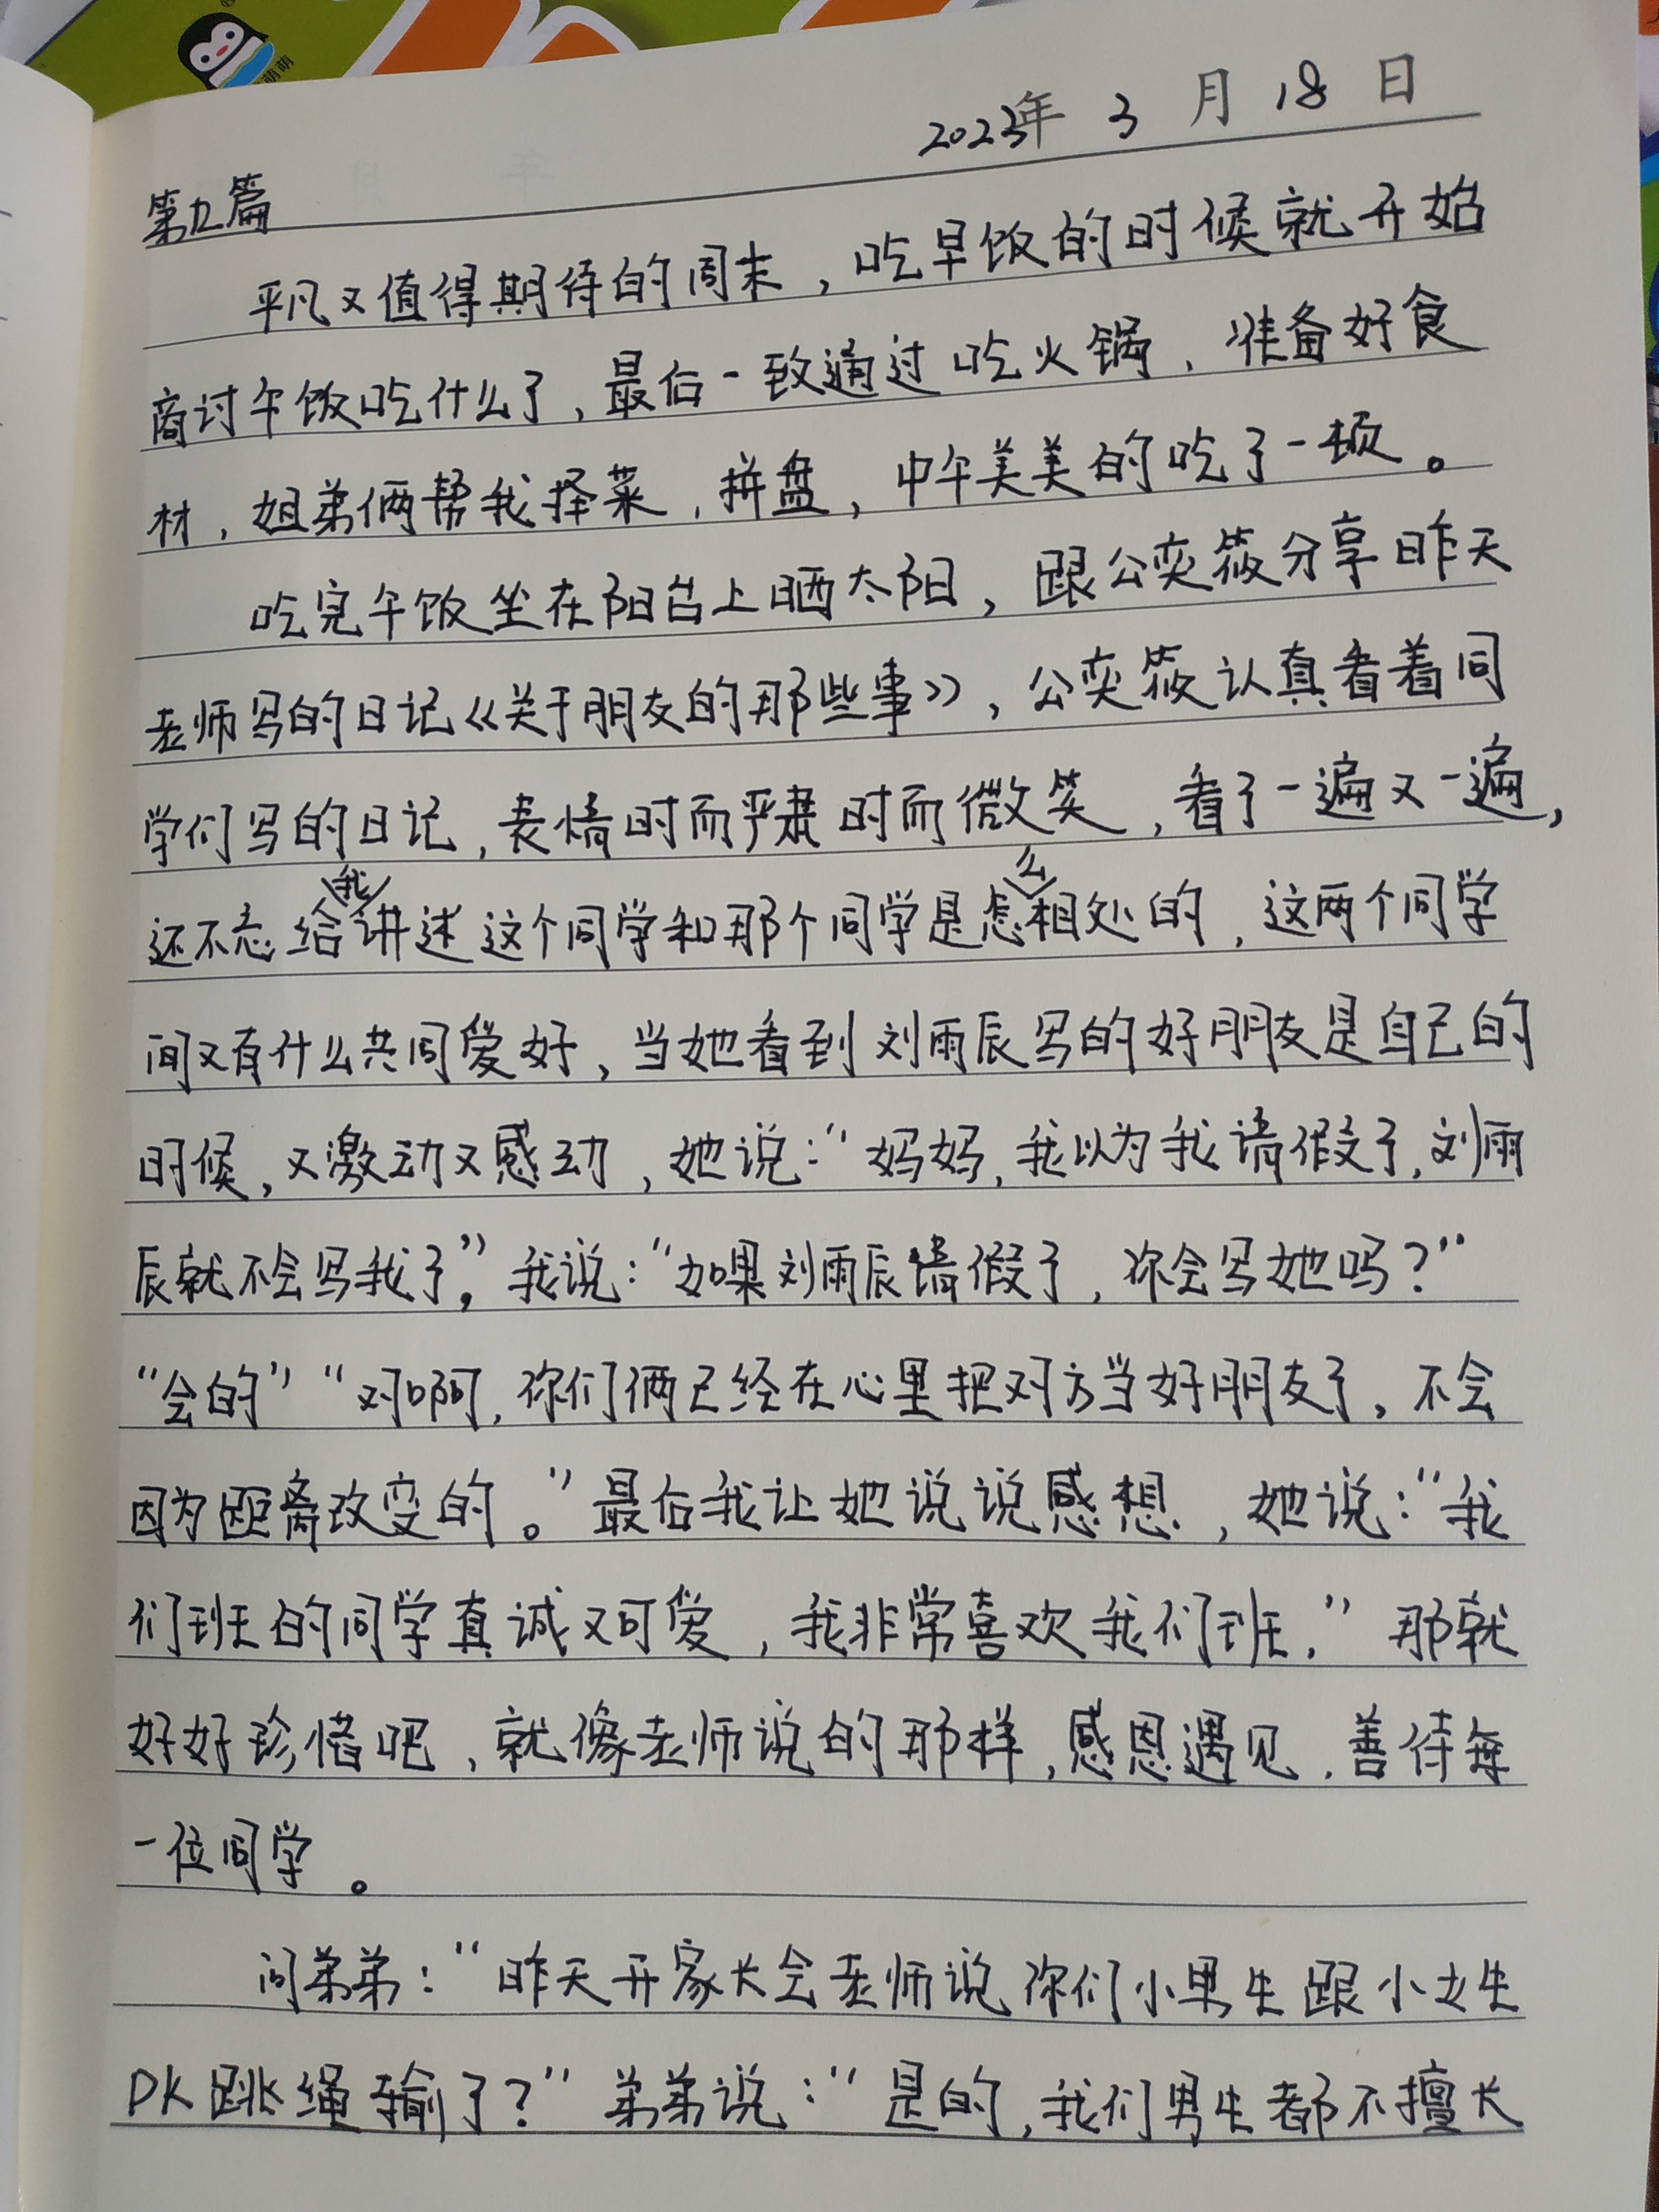 萌萌
2023年 3 月 18 日
第九篇
平凡又值得期待的周末，吃早饭的时候就开始
商讨午饭吃什么了，最后一致通过吃火锅，准备好食
材，姐弟俩帮我择菜，拼盘，中午美美的吃了一顿。
吃完午饭坐在阳台上晒太阳，跟公奕筱分享昨天
老师写的日记《关于朋友的那些事》，公奕筱认真看着同
学们写的日记，表情时而严肃时而微笑，看了一遍又一遍，
还不忘给我讲述这个同学和那个同学是怎么相处的，这两个同学
间又有什么共同爱好，当她看到刘雨辰写的好朋友是自己的
时候，又激动又感动，她说：“妈妈，我以为我请假了，刘雨
辰就不会写我了。”我说：“如果刘雨辰请假了，你会写她吗？”
“会的”“对啊，你们俩已经在心里把对方当好朋友了，不会
因为距离改变的。”最后我让她说说感想，她说：“我
们班的同学真诚又可爱，我非常喜欢我们班，”那就
好好珍惜吧，就像老师说的那样，感恩遇见，善待每
一位同学。
问弟弟：“昨天开家长会老师说你们小男生跟小女生
PK跳绳输了？”弟弟说：“是的，我们男生都不擅长